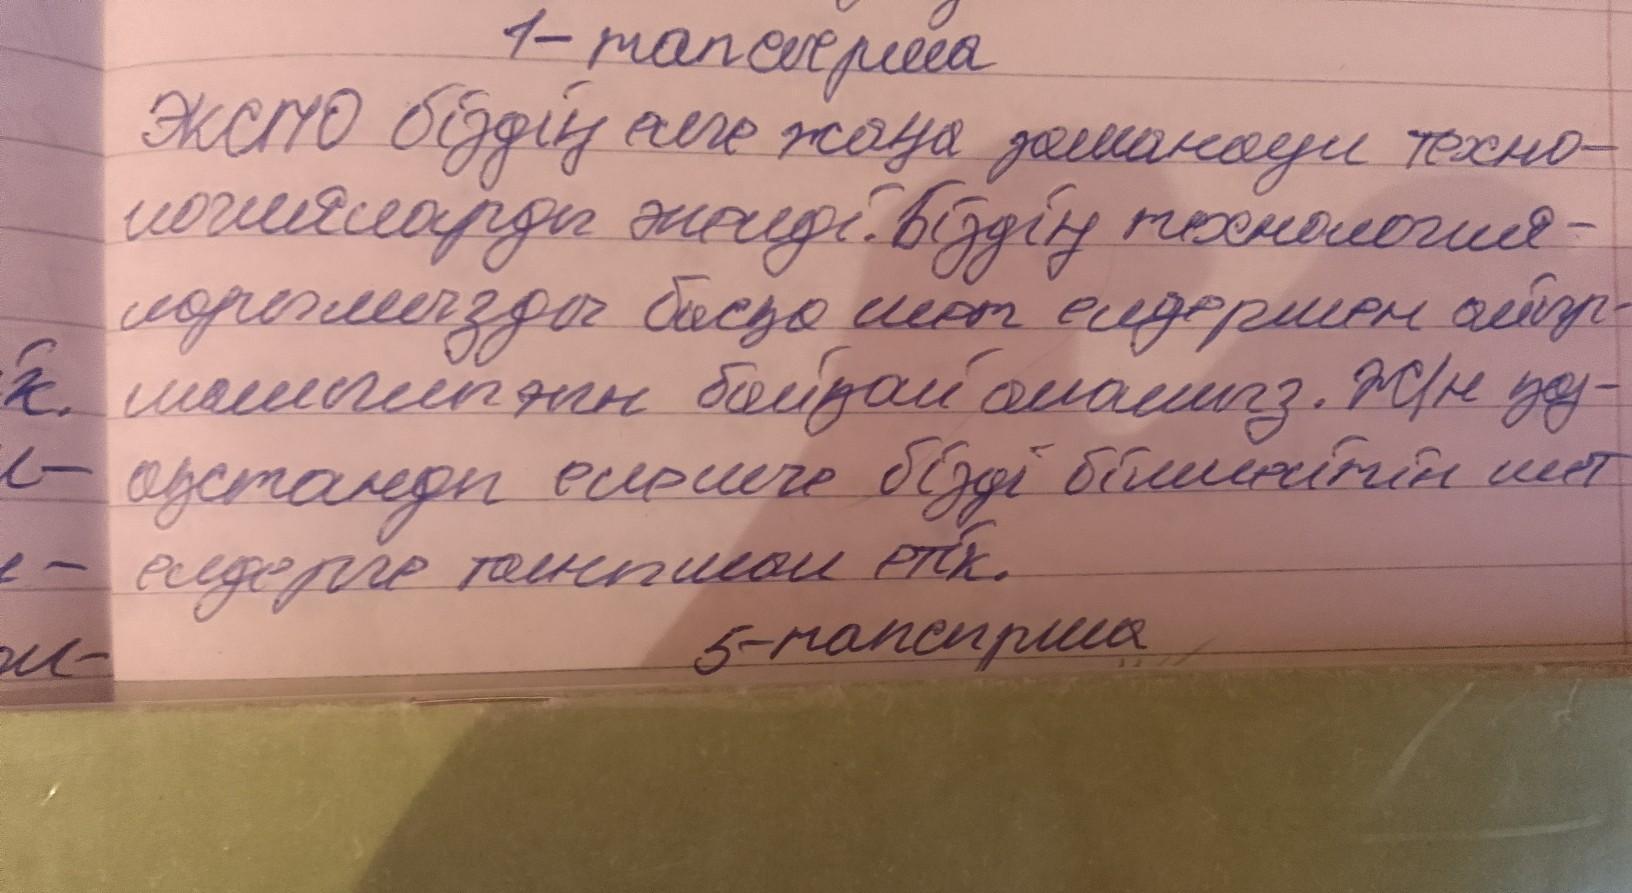 1-тапсырма
ЭКСПО біздің елге жаңа заманауи техно-
логияларды әкелді. Біздің технология-
ларымызды басқа шет елдермен айыр-
машылығын байқай аламыз. Ж/н қаз-
ақстанды елемге бізді білмейтін шет
елдерге танымал етік.
5-тапсырма
к.